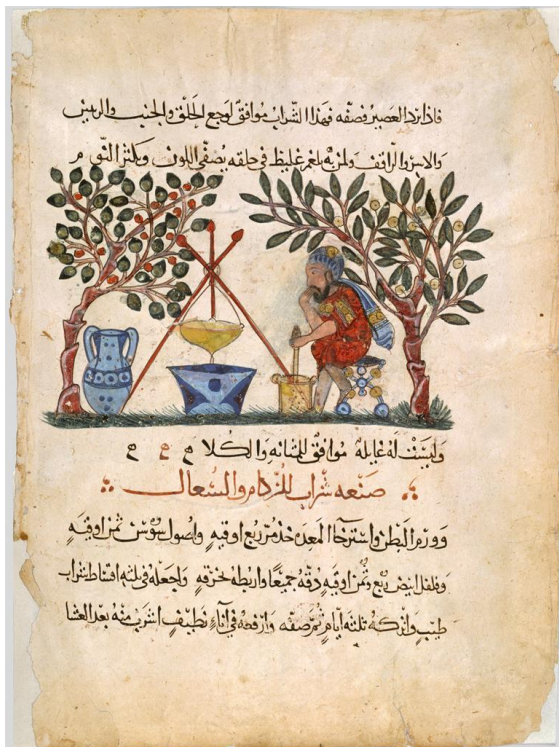 فاذا برد العصير فصفه فهذا الشراب موافق لوجع الحلق والجنب والرئتين
والابرد الراقف ولمن به بلغم غليظ في حلقه يصفي اللون ويكثر النوم م
وليست له غايله موافق للمثانه والكلا م م م
صنعه شراب للزكام والسعال
وورم البطن واسترخا المعده خذ مر ربع اوقيه واصول سوسن ثمن اوقيه
وفلفل ابيض ربع وثمن اوقيه دقه جميعا واربطه بخرقه واجعله في ثلثه اقساط شراب
طيب واتركه ثلثه ايام ثم صفه وارفعه في اناء نظيف اشرب منه بعد العشا